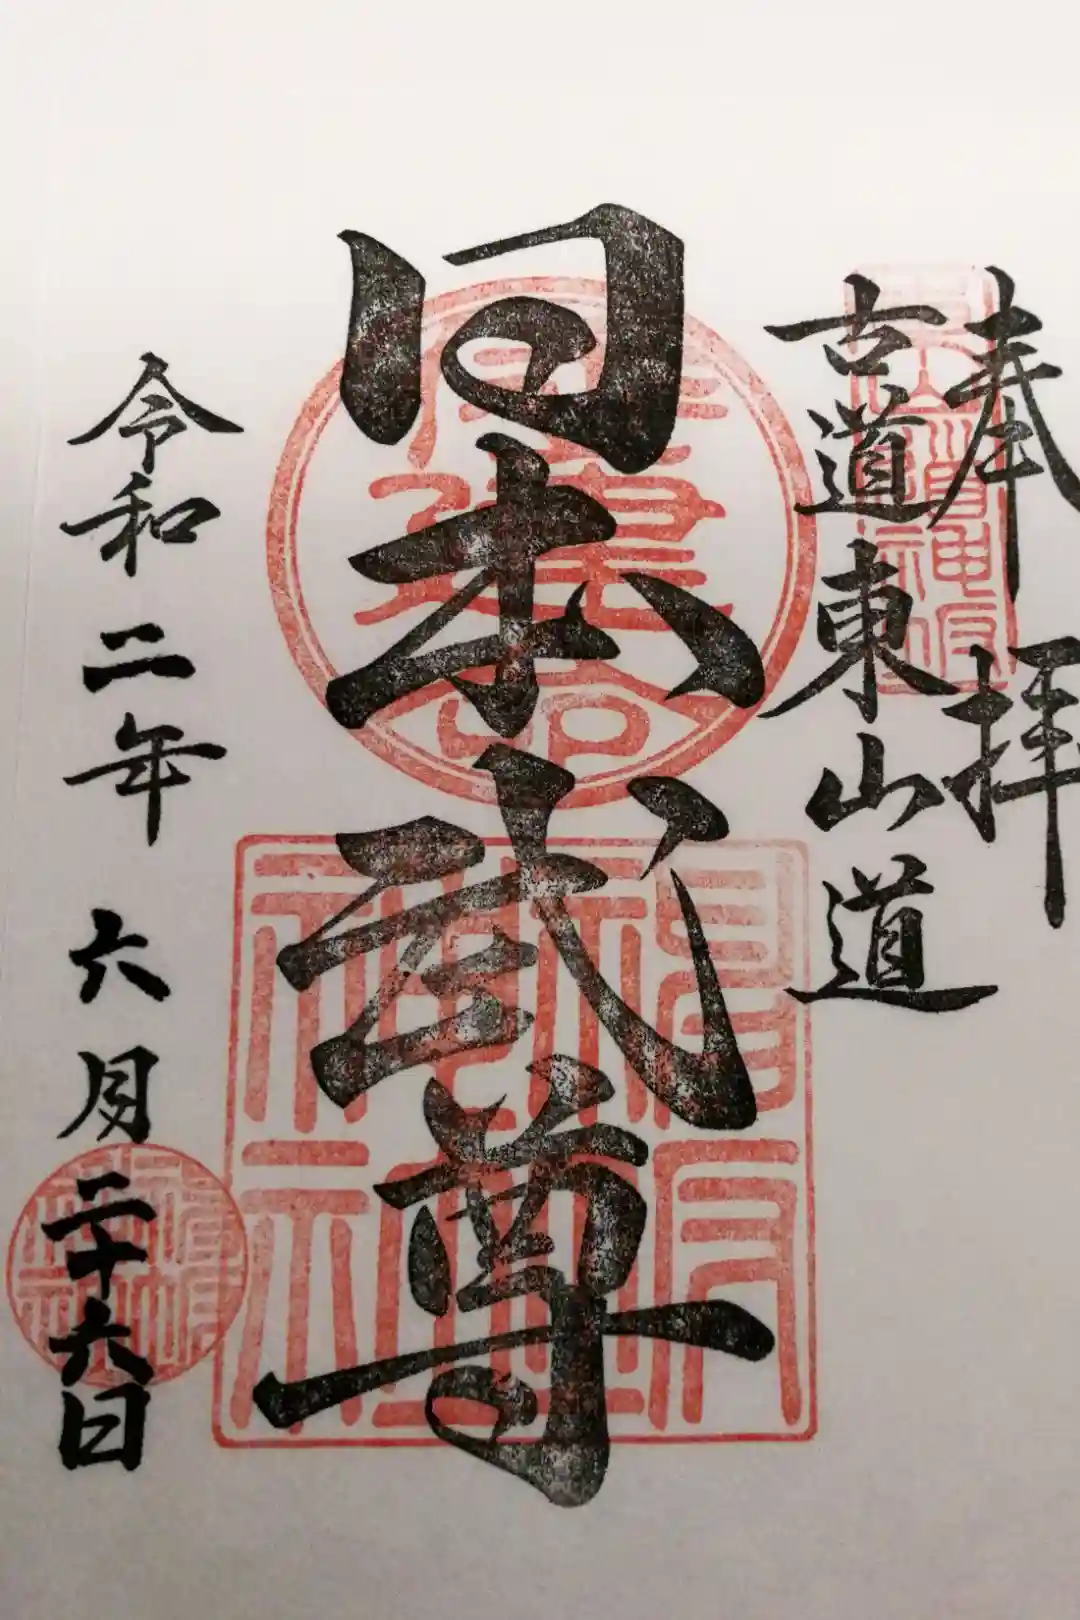 奉拝
古道東山道
日本武尊
令和二年 六月二十六日